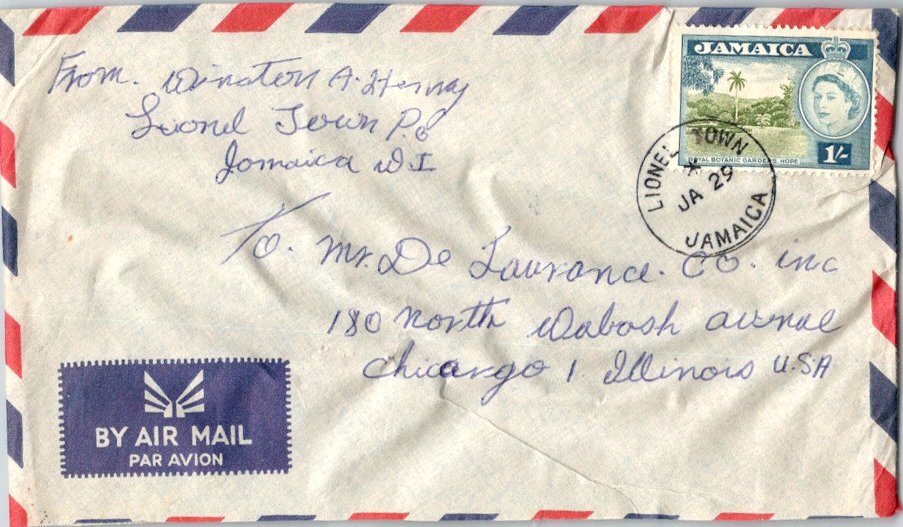 From. Winston A. Henry
Lionel Town P.O
Jamaica W.I
JAMAICA
ROYAL BOTANIC GARDENS, HOPE
1/-
LIONEL TOWN
JA 29
JAMAICA
To. Mr. De Laurance. CO. inc
180 North Wabash avenue
Chicango 1 Illinois U.S.A
BY AIR MAIL
PAR AVION